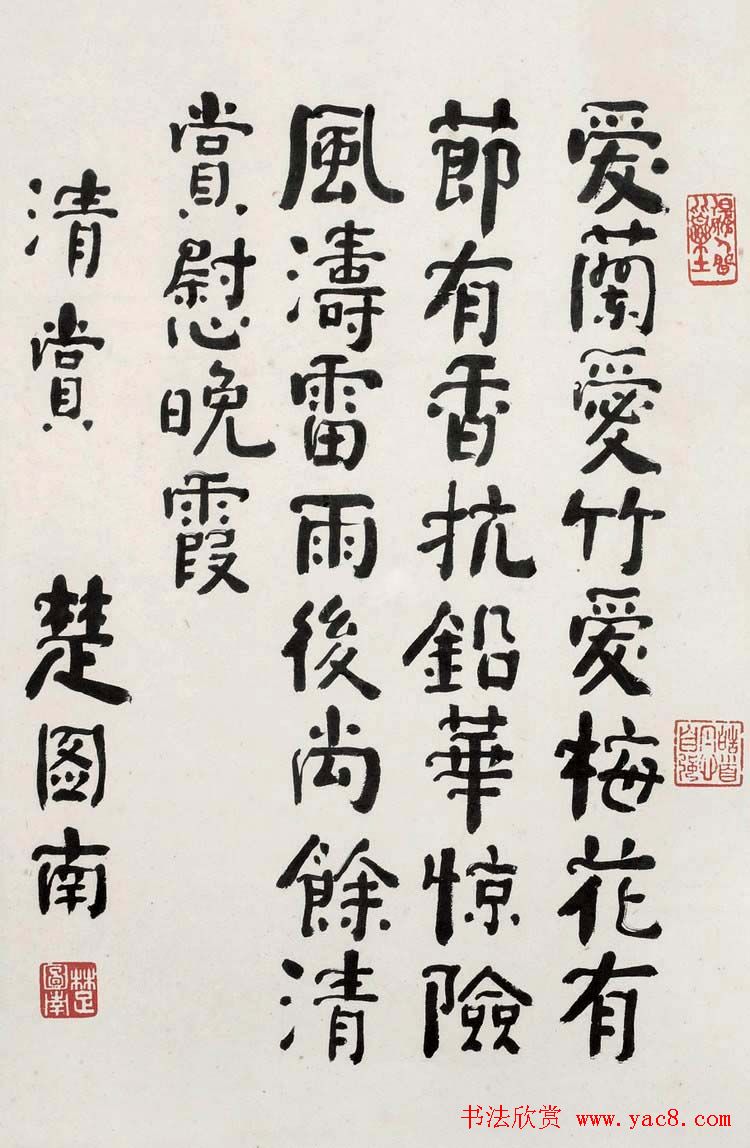 愛蘭愛竹愛梅花有
節有香抗鉛華惊險
風濤雷雨後尚餘清
賞慰晚霞
清賞 楚图南
楚圖南
书法欣赏 www.yac8.com